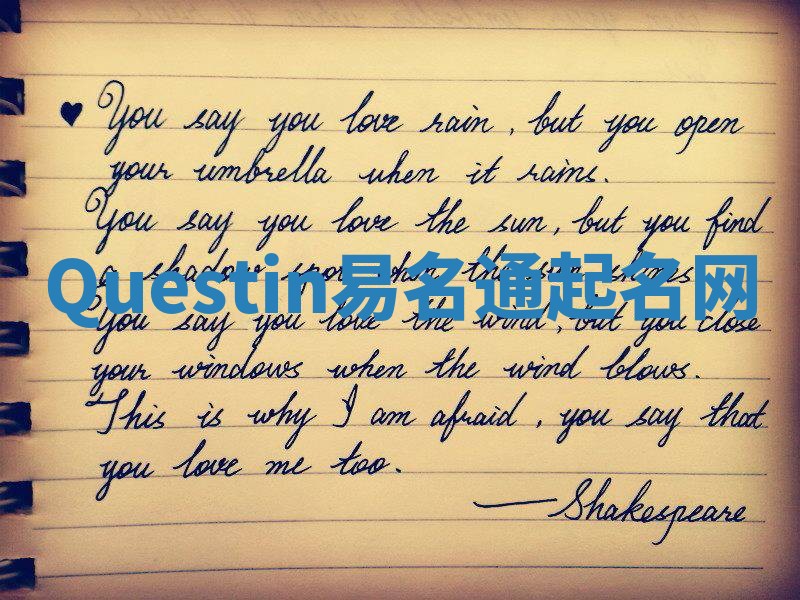 ♥ You say you love rain, but you open
your umbrella when it rains.
You say you love the sun, but you find
a shadow spot when the sun shines
Questin易名通起名网
You say you love the wind, but you close
your windows when the wind blows.
This is why I am afraid, you say that
you love me too.
— Shakespeare